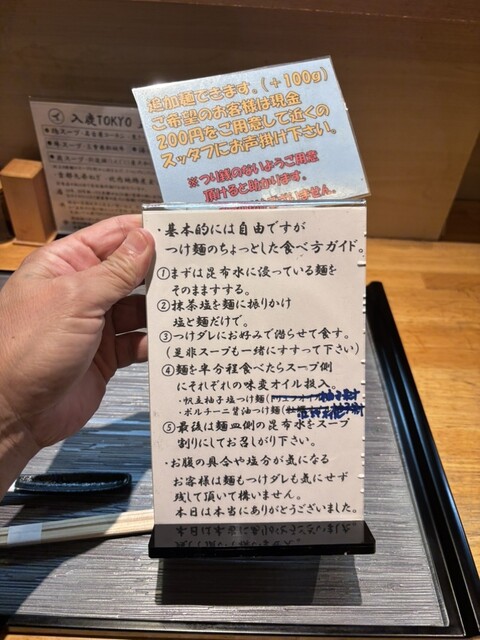 追加麺できます。(+100g)
ご希望のお客様は現金
200円をご用意して近くの
スッタフにお声掛け下さい。
※つり銭のないようご用意
頂けると助かります。
いません。
入鹿TOKYO
・基本的には自由ですが
つけ麺のちょっとした食べ方ガイド。
①まずは昆布水に浸っている麺を
そのまますする。
②抹茶塩を麺に振りかけ
塩と麺だけで。
③つけダレにお好みで潜らせて食す。
(是非スープも一緒にすすって下さい)
④麺を半分程食べたらスープ側
にそれぞれの味変オイル投入。
・帆立柚子塩つけ麺(
・ポルチーニ醤油つけ麺(
⑤最後は麺皿側の昆布水をスープ
割りにしてお召しがり下さい。
・お腹の具合や塩分が気になる
お客様は麺もつけダレも気にせず
残して頂いて構いません。
本日は本当にありがとうございました。